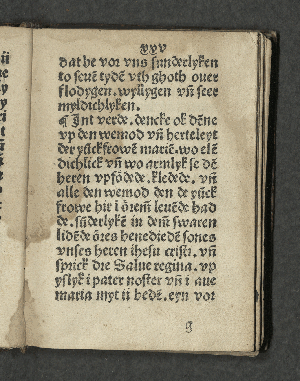 xxv
dat he vor vns sunderlyken
to seuē tydē vth ghoth ouer
flodygen. wyllygen vn̄ seer
myldichlyken.
¶ Int verde. dencke ok dēne
vp den wemod vn̄ herteleyt
der yūckfrowē mariē. wo elē
dichlick vn̄ wo armlyk se dē
heren vpfōdede. kledede. vn̄
alle den wemod den de yūck
frowe hir i ōrem̄ leuēde had
de. sūderlykē in dem̄ swaren
lidēde ōres benediedē sones
vnses heren ihesu cristi. vn̄
sprick dre Salue regina. vp
yslyk i pater noster vn̄ i aue
maria myt ii bedē. eyn vor
g